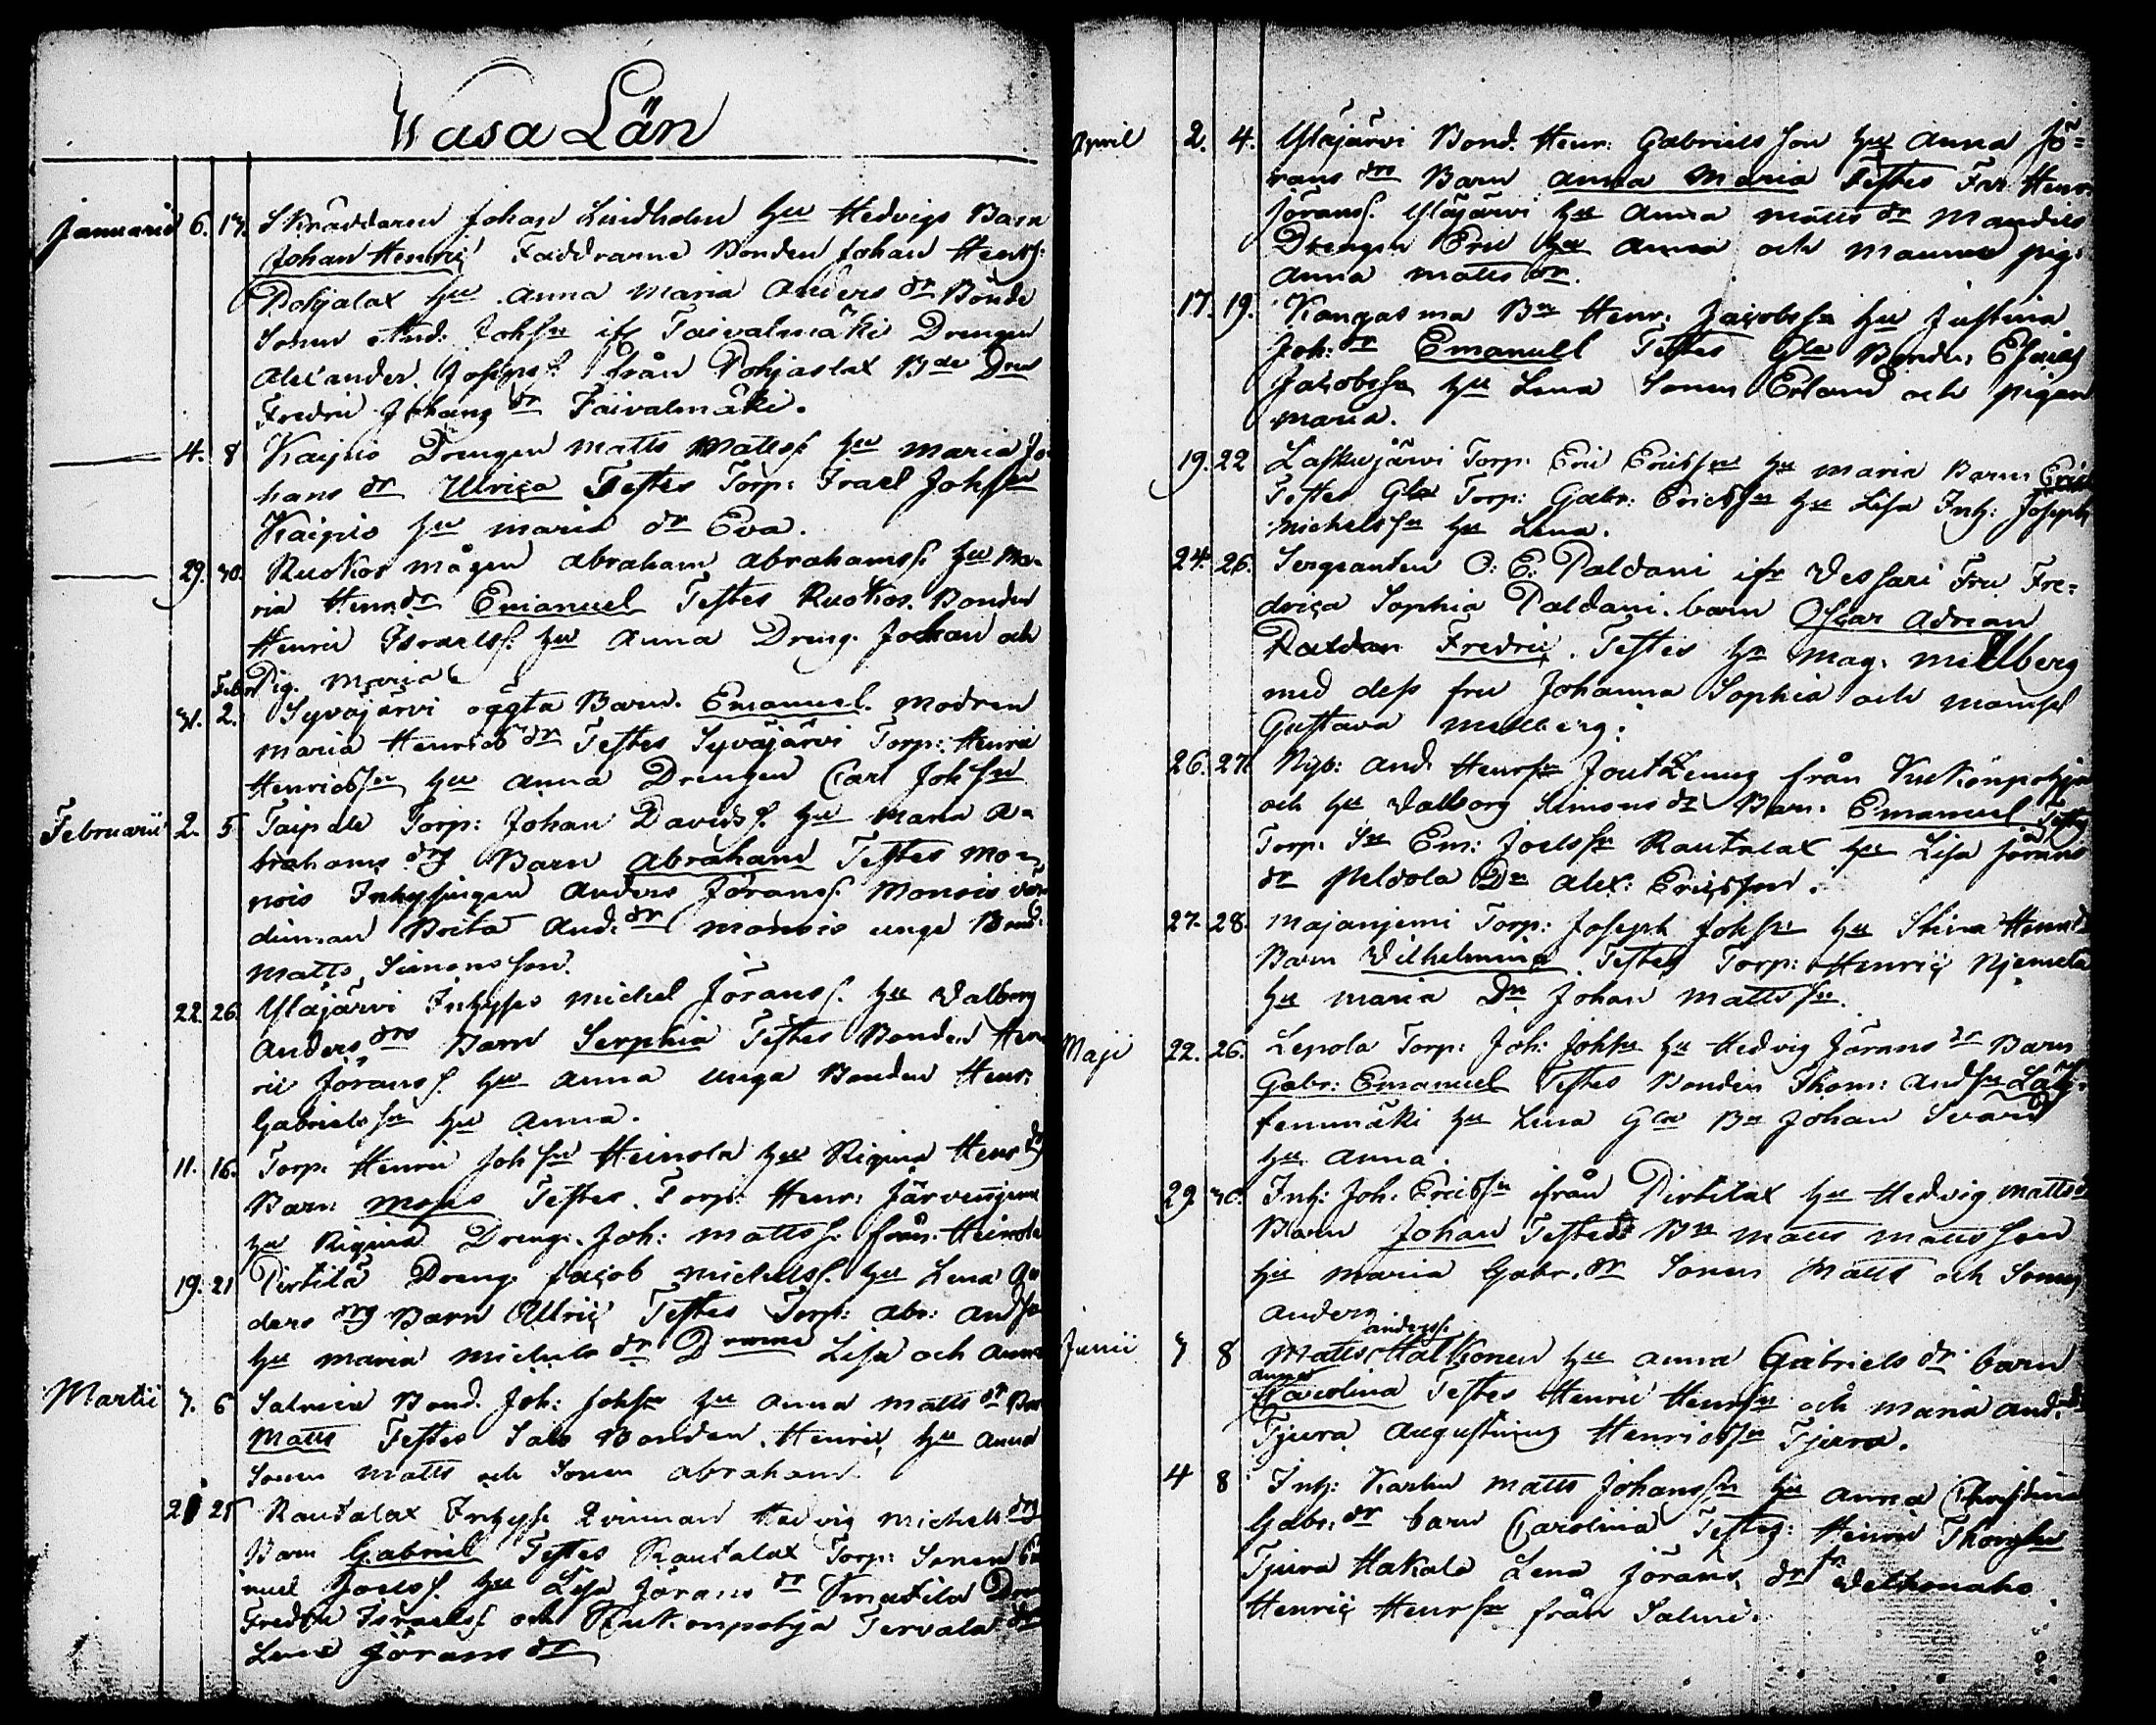 Wasa Län
Januarii 6. 13. Skräddaren Johan Lindholm hu Hedvigs Barn
Johan Henric Faddrarne Bonden Johan Henrs:
Pohjalax hu Anna Maria Anders dr Bonde
Sonen And: Johsn if Taivalmäki Drengen
Alexander Josephs. från Pohjaslax Bde Dren
Fredric Johans dr Taivalmäki.
4. 8 Kaipio Drengen Matts Mattss. hu Maria Jo
hans dr Ulrica Testes Torp: Israel Johssn
Kaipio hu Maria dr Eva.
29. 30. Ruokos mågen Abraham Abrahamss. hu Ma-
ria Henr. dr Emanuel Testes Ruokos. Bonden
Henric Israelss. hu Anna Dreng. Johan och
Pig. Maria
Febr
31. 2. Syväjärvi oägta Barn. Emanuel. Modren
Maria Henrics dr Testes Syväjärvi Torp: Henric
Henricssn hu Anna Drengen Carl Johssn
Februarii 2. 5 Taipale Torp: Johan Davidss. hu Maria A-
brahams drs Barn Abraham Testes Mo-
nois Inhysingen Anders Jöranss. Monois vär
dinnan Brita And. dr Monois unge Bond:
Matts Simonsson.
22. 26. Yläjärvi Inhyses Michel Jöranss. hu Valborg
Anders drs Barn Serphia Testes Bonden Hen
ric Jöranss. hu Anna unga Bonden Henr:
Gabrielssn hu Anna.
11. 16. Torp. Henric Johssn Heinola hu Rigina Henr drs
Barn Moses Testes. Torp: Henr: Järvenpä
hu Rigina Dreng. Joh: Mattss. från Heinola
19. 21 Pirtilä Dreng. Jacob Michelss. hu Lena An
ders drs Barn Ulric Testes Torp: Abr: Andssn
hu Maria Michels dr Lisa och Anna
Martii 3. 6 Salmen Bond. Joh: Johssn hu Anna Matts dr Bar
Matts Testes Salo Bonden. Henric hu Anna
Sonen Matts och Sonen Abraham
2 25 Rautalax Inhyse Qvinnan Hedvig Michels drs
Barn Gabriel Testes Rautalax Torp: Sonen Em
nuel Joelss. hu Lisa Jörans dr Dren
Fredric Israelss. och Kukonpohja Tervala dr
Lena Jörans dr
April 2. 4. Yläjärvi Bond. Henr: Gabrielsson hu Anna Jö-
rans drs Barn Anna Maria Testes Far Henr.
Jöranss. Yläjärvi hu Anna Matts dr
Drengen Eric hu Anna och pig:
Anna Matts dr.
17. 19. Kangasma Bn Henr. Jacobssn hu Justina
Joh: dr Emanuel Testes Gla Bonden Esaias
Jacobssn hu Lena Sonen Erland och pigan
Maria.
19. 22 Laskujärvi Torp: Eric Ericssn hu Maria Barn Eric
Testes Gla Torp: Gabr: Ericssn hu Lisa Inh: Joseph
Michelssn hu Lena.
24. 26. Sergeanten O: E: Paldani ifr Vessari Fru Fre-
drica Sophia Paldani. barn Oscar Adrean
Paldan Fredric. Testes hr Mag. Mellberg
med dess fru Johanna Sophia och Mamsel
Gustava Mellberg.
26. 27. Nyb: And. Henrssn Joutzenus från Kukonpohja
och hu Valborg Simons dr Barn. Emanuel Testes
Torp. Sn Em: Joelssn Rautalax hu Lisa Jörans
dr Peldola Dn Alex: Ericsson.
27. 28. Majanjemi Torp: Joseph Johssn hu Stina Henrs
Barn Wilhelmina Testes Torp: Henric Njemela
hu Maria Dn Johan Mattssn.
Maji 22. 26. Lepola Torp: Joh: Johssn hu Hedvig Jörans dr Barn
Gabr: Emanuel Testes Bonden Thom: Andssn
hu Lena Gla Bn Johan Svärd
hu Anna.
29 30. Inh: Joh: Ericssn ifrån Pirtilax hu Hedvig Matts dr
Barn Johan Testes Bn Matts Mattsson
hu Maria Gabr. dr Sonen Matts och Sonen
Anders
Junii 3 8 Matts Anderss. Halkonen hu Anna Gabriels dr barn
Anna
Carolina Testes Henric Henrssn och Maria And. dr
Tjura Augustinus Henricssn Tjura.
4 8 Inh: Karlen Matts Johanssn hu Anna Christina
Gabr. dr barn Carolina Testes: Henric
Tjura Hakala Lena Jörans dr fr
Henric Henrssn från Salmi.